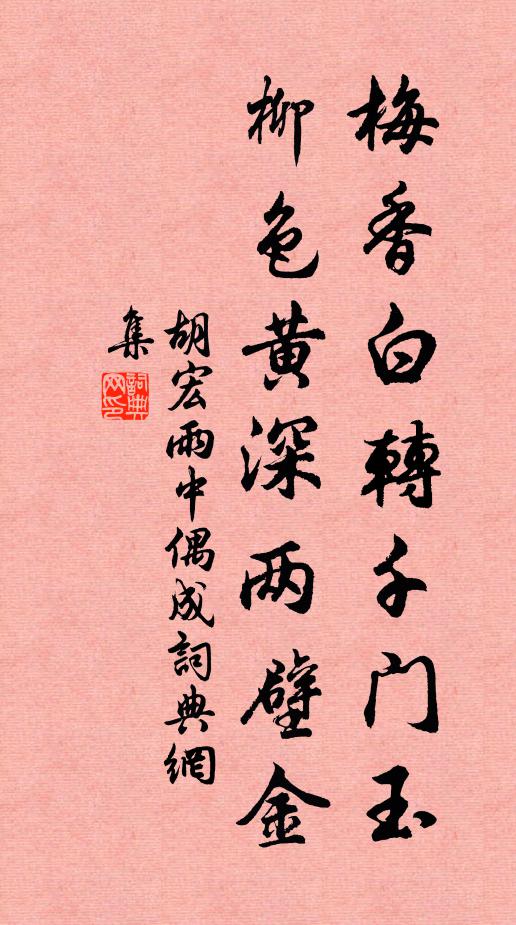 梅香白轉千门玉
柳色黄深两壁金
胡宏雨中偶成詞典網
集
詞典
网印